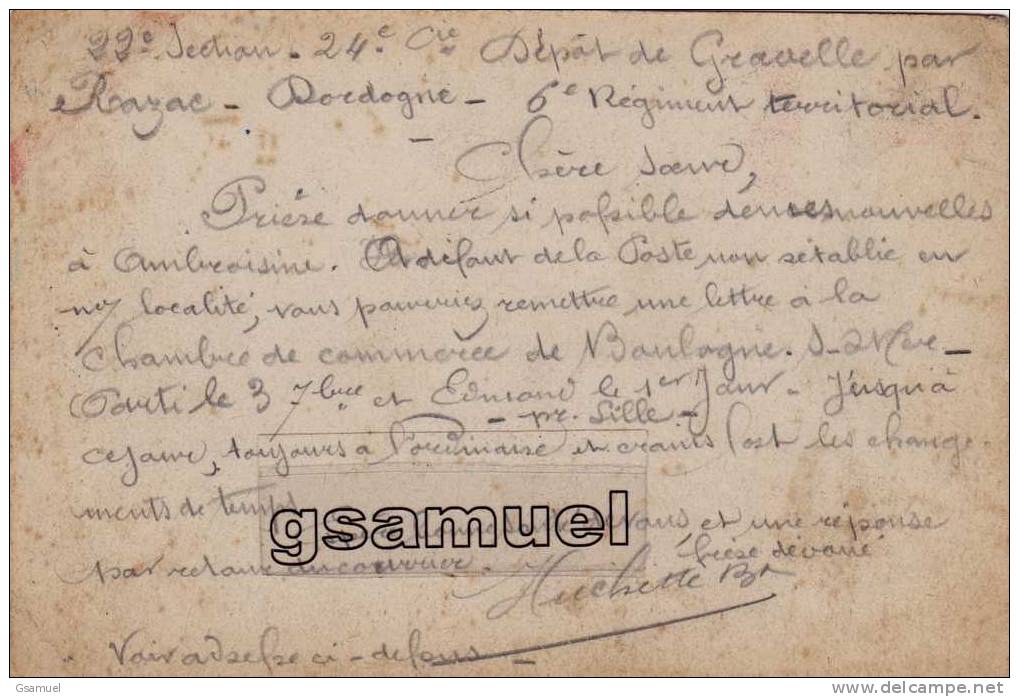 22e Section - 24e Cie Dépôt de Gravelle par
Razac - Dordogne - 6e Régiment territorial.
Chère Soeur,
Prière donner si possible de mes nouvelles
à Ambroisine. A défaut de la Poste non rétablie en
localité, vous pourriez remettre une lettre à la
Chambre de commerce de Boulogne. S-Mer -
Parti le 3 7bre et Edmond le 1er Jour - Jusqu'à
- pr. Lille -
ce jour, toujours à l'ordinaire et crains fort les change-
ments de temps
vous, et une réponse
par retour du courrier. frère dévoué
Huchette Bt
Voir adresse ci-dessous -
gsamuel
Gsamuel
delcampe.net